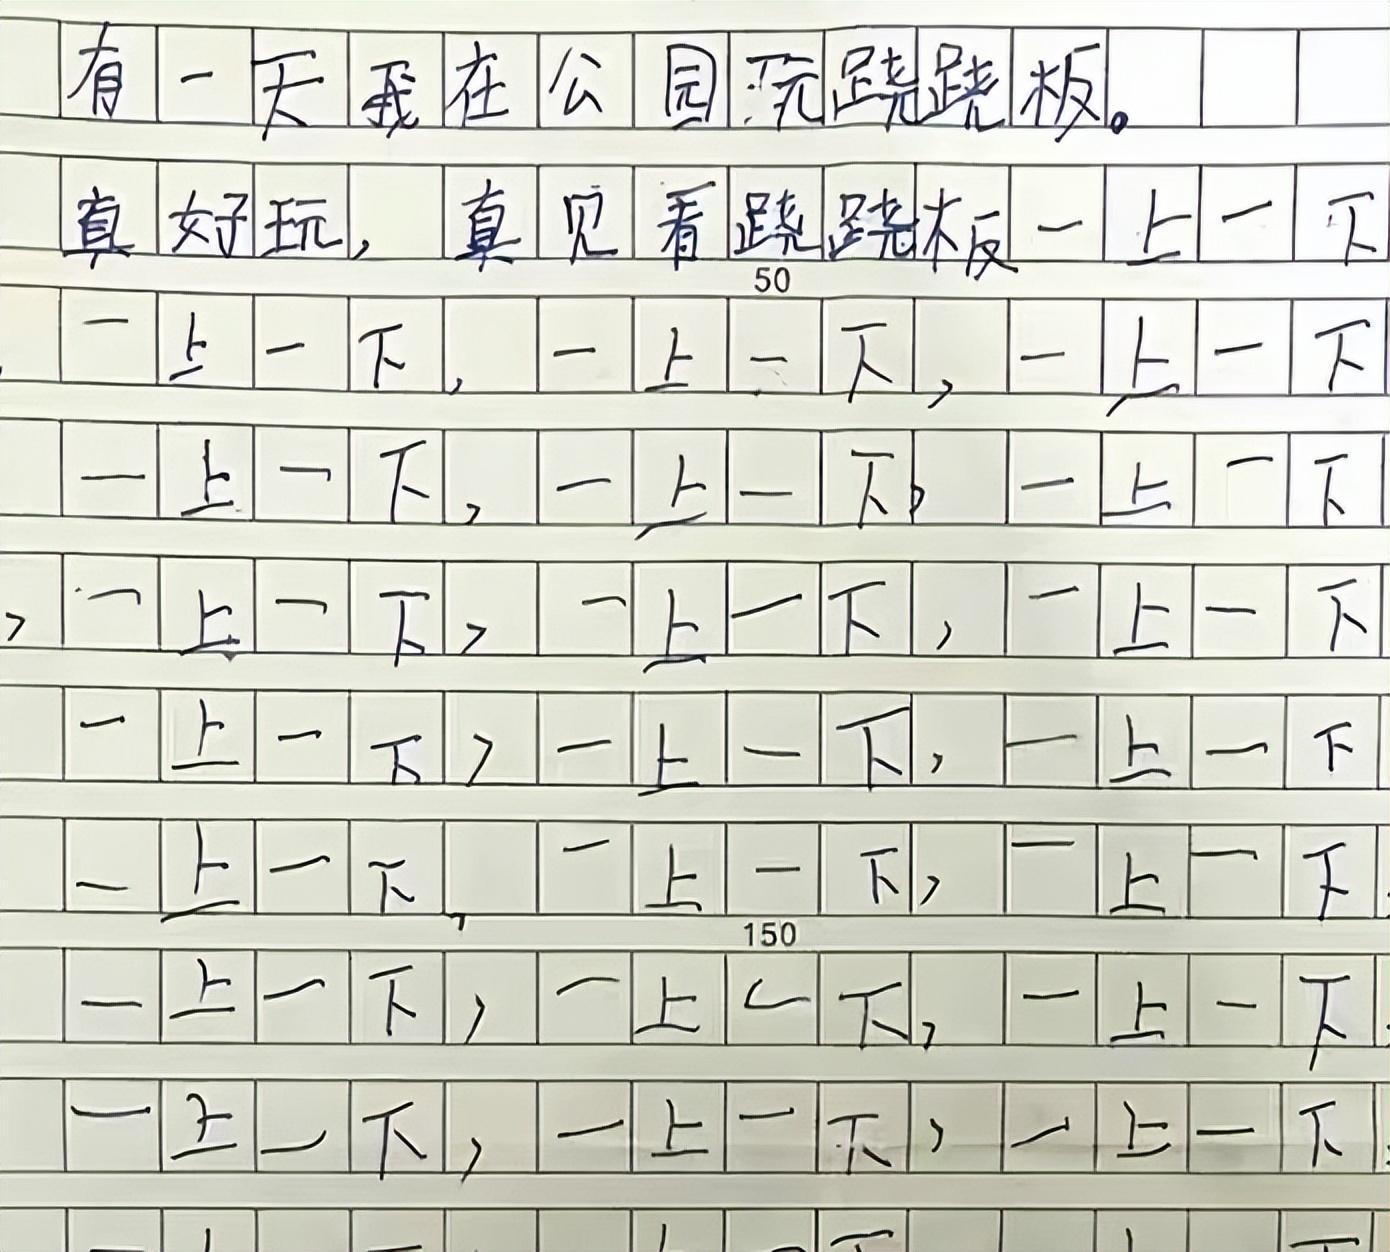 有一天我在公园玩跷跷板。
真好玩，真见看跷跷板一上一下
50
，一上一下，一上一下，一上一下
一上一下，一上一下，一上一下
，一上一下，一上一下，一上一下
一上一下，一上一下，一上一下
一上一下，一上一下，一上一下
150
一上一下，一上一下，一上一下
一上一下，一上一下，一上一下